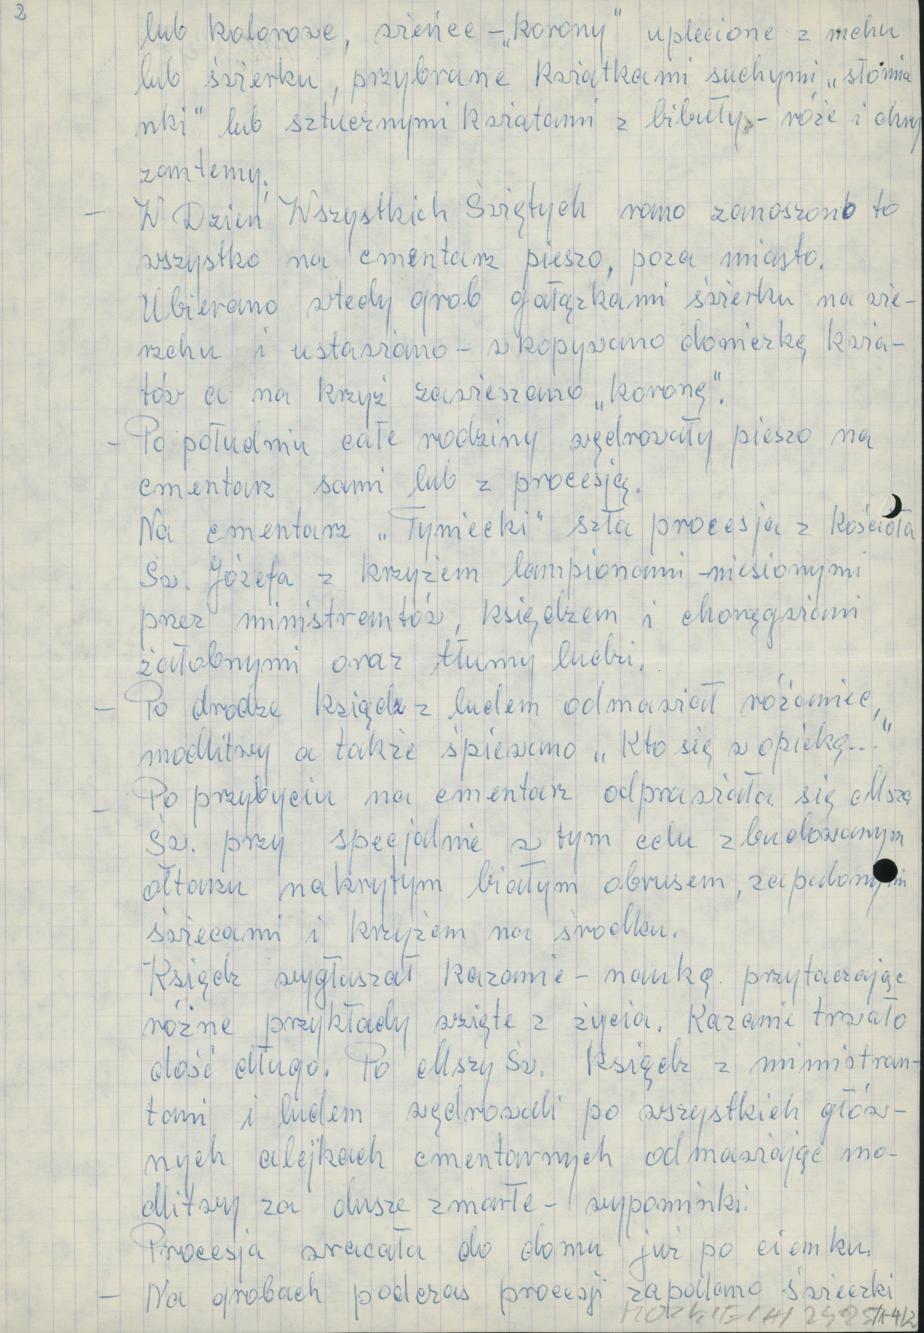 2
lub kolorowe, wieńce - „korony" uplecione z mchu
lub świerku, przybrane kwiatkami suchymi „słomia
nki" lub sztucznymi kwiatami z bibuły, - róże i chry
zantemy.
- W Dzień Wszystkich Świętych rano zanoszono to
wszystko na cmentarz pieszo, poza miasto.
Ubierano wtedy grób gałązkami świerku na wie-
rzchu i ustawiano - wkopywano doniczkę kwia-
tów a na krzyż zawieszano „koronę".
- Po południu całe rodziny wędrowały pieszo na
cmentarz sami lub z procesją.
Na cmentarz „Tyniecki" szła procesja z Kościoła
Św. Józefa z krzyżem lampionami - niesionymi
przez ministrantów, księdzem i chorągwiami
żałobnymi oraz tłumy ludzi.
- Po drodze ksiądz z ludem odmawiał różaniec,
modlitwy a także śpiewano „Kto się w opiekę..."
- Po przybyciu na cmentarz odprawiała się Msza
Św. przy specjalnie w tym celu zbudowanym
ołtarzu nakrytym białym obrusem, zapalonymi
świecami i krzyżem na środku.
Ksiądz wygłaszał kazanie - naukę przytaczając
różne przykłady wzięte z życia. Kazanie trwało
dość długo. Po Mszy Św. Ksiądz z ministran-
tami i ludem wędrowali po wszystkich głów-
nych alejkach cmentarnych odmawiając mo-
dlitwy za dusze zmarłe - wypominki.
Procesja wracała do domu już po ciemku.
- Na grobach podczas procesji zapalano świeczki